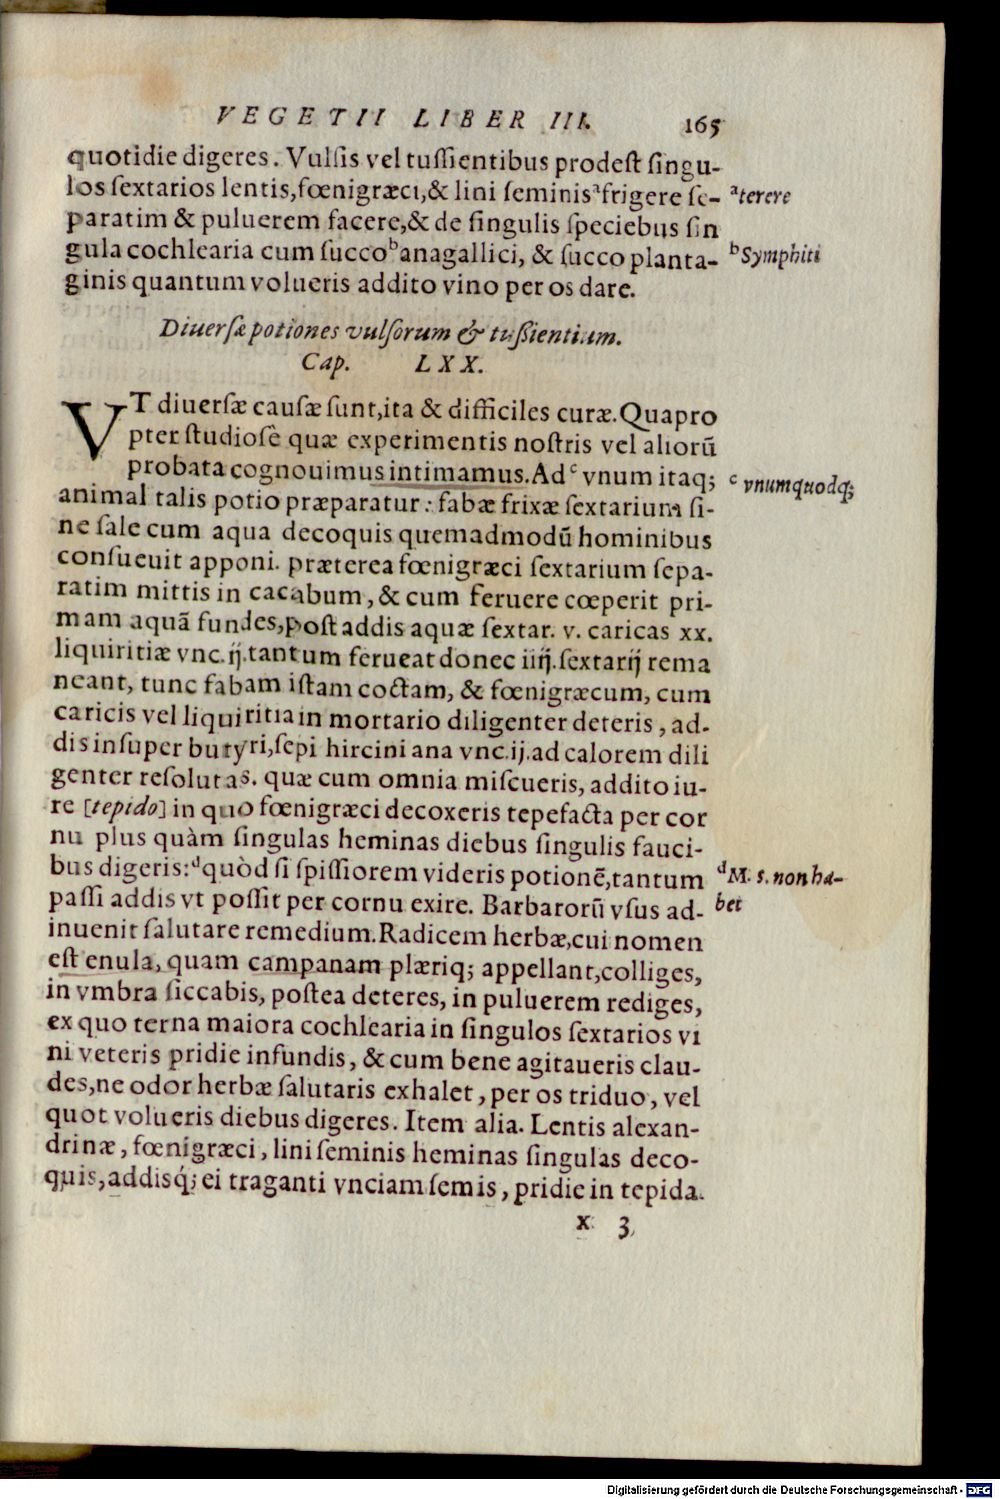 VEGETII LIBER III. 165
quotidie digeres. Vulsis vel tussientibus prodest singu-
los sextarios lentis, fœnigræci, & lini seminis ᵃfrigere se- ᵃterere
paratim & puluerem facere, & de singulis speciebus sin
gula cochlearia cum succo ᵇanagallici, & succo planta- ᵇSymphiti
ginis quantum volueris addito vino per os dare.
Diuersæ potiones vulsorum & tussientium.
Cap. LXX.
VT diuersæ causæ sunt, ita & difficiles curæ. Quapro
pter studiosè quæ experimentis nostris vel aliorũ
probata cognouimus intimamus. Ad ᶜ vnum itaq; ᶜ vnumquodq;
animal talis potio præparatur: fabæ frixæ sextarium si-
ne sale cum aqua decoquis quemadmodũ hominibus
consueuit apponi. præterea fœnigræci sextarium sepa-
ratim mittis in cacabum, & cum feruere cœperit pri-
mam aquã fundes, post addis aquæ sextar. v. caricas xx.
liquiritiæ vnc. ij. tantum ferueat donec iiij. sextarij rema
neant, tunc fabam istam coctam, & fœnigræcum, cum
caricis vel liquiritia in mortario diligenter deteris, ad-
dis insuper butyri, sepi hircini ana vnc. ij. ad calorem dili
genter resolutas. quæ cum omnia miscueris, addito iu-
re [tepido] in quo fœnigræci decoxeris tepefacta per cor
nu plus quàm singulas heminas diebus singulis fauci-
bus digeris: ᵈquòd si spissiorem videris potionẽ, tantum ᵈM. s. non ha-
passi addis vt possit per cornu exire. Barbarorũ vsus ad- bet
inuenit salutare remedium. Radicem herbæ, cui nomen
est enula, quam campanam plæriq; appellant, colliges,
in vmbra siccabis, postea deteres, in puluerem rediges,
ex quo terna maiora cochlearia in singulos sextarios vi
ni veteris pridie infundis, & cum bene agitaueris clau-
des, ne odor herbæ salutaris exhalet, per os triduo, vel
quot volueris diebus digeres. Item alia. Lentis alexan-
drinæ, fœnigræci, lini seminis heminas singulas deco-
quis, addisq́; ei traganti vnciam semis, pridie in tepida.
x 3
Digitalisierung gefördert durch die Deutsche Forschungsgemeinschaft - DFG